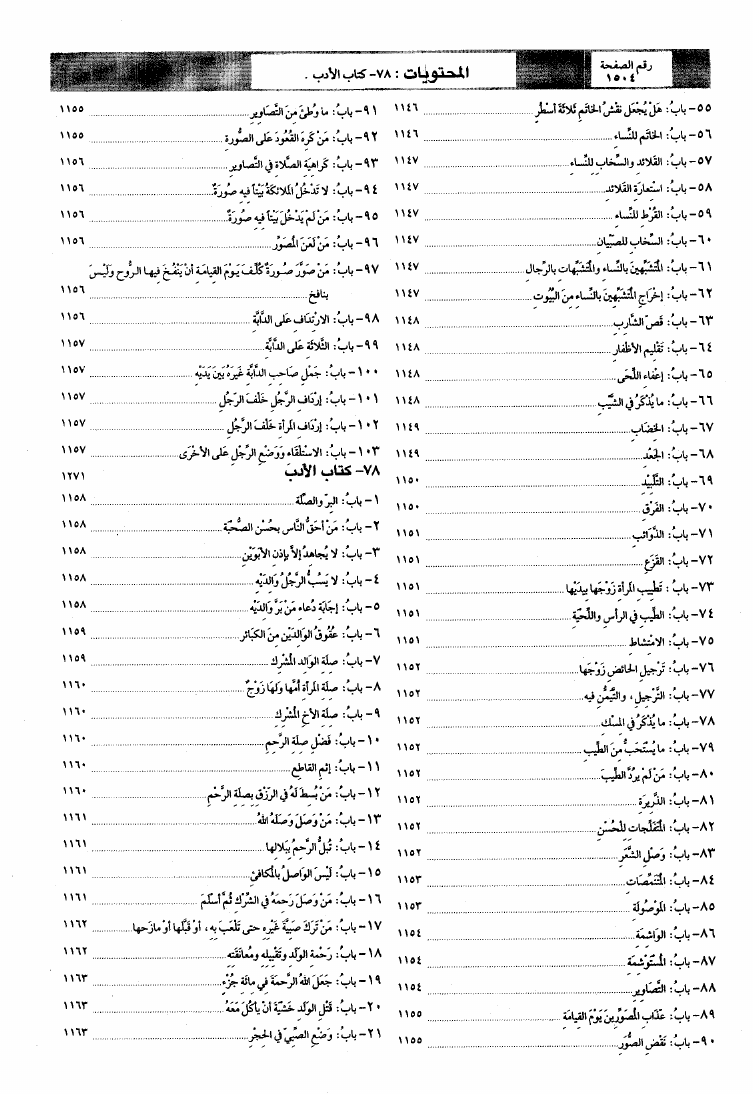 رقم الصفحة
١٥٠٤
المحتويات : ٧٨- كتاب الأدب .
٥٥- بابُ: هَلْ يُجْعَل نَقْشُ الخاتَمِ ثَلاثَةَ أسْطُرٍ ١١٤٦
٥٦- بابُ: الخاتَمِ للنِّساء ١١٤٦
٥٧- بابُ: القَلائِد والسِّخابِ للنِّساء ١١٤٧
٥٨- بابُ: اسْتِعارَة القَلائِد ١١٤٧
٥٩- بابُ: القُرْطِ للنِّساء ١١٤٧
٦٠- بابُ: السِّخَابِ للصِّبْيان ١١٤٧
٦١- بابُ: المُتَشَبِّهِينَ بالنِّساء والمُتَشَبِّهات بالرِّجال ١١٤٧
٦٢- بابُ: إخْراجِ المُتَشَبِّهِينَ بالنِّساء مِنَ البُيُوت ١١٤٧
٦٣- بابُ: قَصِّ الشَّارِب ١١٤٨
٦٤- بابُ: تَقْلِيم الأظْفار ١١٤٨
٦٥- بابُ: إعْفاء اللِّحَى ١١٤٨
٦٦- بابُ: ما يُذْكَرُ في الشَّيْب ١١٤٨
٦٧- بابُ: الخِضَاب ١١٤٩
٦٨- بابُ: الجَعْد ١١٤٩
٦٩- بابُ: التَّلْبِيْد ١١٥٠
٧٠- بابُ: الفَرْق ١١٥٠
٧١- بابُ: الذَّوائب ١١٥١
٧٢- بابُ: القَزَع ١١٥١
٧٣- بابُ : تَطْيِيبِ المرأة زَوْجَها بِيَدَيْها ١١٥١
٧٤- بابُ: الطِّيْبِ في الرأس واللِّحْيَة ١١٥١
٧٥- بابُ: الامْتِشاط ١١٥١
٧٦- بابُ: تَرْجِيل الحائِضِ زَوْجَها ١١٥٢
٧٧- بابُ: التَّرْجِيل، والتَّيَمُّنِ فيه ١١٥٢
٧٨- بابُ: ما يُذْكَرُ في المِسْك ١١٥٢
٧٩- بابُ: ما يُسْتَحَبُّ مِنَ الطِّيب ١١٥٢
٨٠- بابُ: مَنْ لَمْ يَرُدَّ الطِّيبَ ١١٥٢
٨١- بابُ: الذَّرِيرَة ١١٥٢
٨٢- بابُ: المُتَفَلِّجات للحُسْنِ ١١٥٢
٨٣- بابُ: وَصْلِ الشَّعَر ١١٥٢
٨٤- بابُ: المُتَنَمِّصَات ١١٥٣
٨٥- بابُ: المَوْصُولَة ١١٥٣
٨٦- بابُ: الوَاشِمَة ١١٥٤
٨٧- بابُ: المُسْتَوْشِمَة ١١٥٤
٨٨- بابُ: التَّصَاوِير ١١٥٤
٨٩- بابُ: عَذَابِ المُصَوِّرِينَ يَوْمَ القِيامَة ١١٥٥
٩٠- بابُ: نَقْضِ الصُّوَر ١١٥٥
٩١- بابُ: ما وُطِئَ مِنَ التَّصاوِير ١١٥٥
٩٢- بابُ: مَنْ كَرِهَ القُعُودَ عَلَى الصُّورَة ١١٥٥
٩٣- بابُ: كَراهِيَة الصَّلاة في التَّصاوِير ١١٥٦
٩٤- بابُ: لا تَدْخُلُ المَلائكةُ بَيْتاً فيه صُورَةٌ ١١٥٦
٩٥- بابُ: مَنْ لَمْ يَدْخُلْ بَيْتاً فيه صُورَةٌ ١١٥٦
٩٦- بابُ: مَنْ لَعَنَ المُصَوِّر ١١٥٦
٩٧- بابُ: مَنْ صَوَّرَ صُورَةً كُلِّفَ يَوْمَ القِيامَة أنْ يَنْفُخَ فيها الرُّوح وَلَيْسَ
بنافخ ١١٥٦
٩٨- بابُ: الارْتِدافِ عَلى الدَّابَّة ١١٥٦
٩٩- بابُ: الثَّلاثَة عَلى الدَّابَّة ١١٥٧
١٠٠- بابُ: حَمْلِ صَاحبِ الدَّابَّة غَيْرَهُ بَيْنَ يَدَيْهِ ١١٥٧
١٠١- بابُ: إرْدَافِ الرَّجُلِ خَلْفَ الرَّجُل ١١٥٧
١٠٢- بابُ: إرْدَاف المرأة خَلْفَ الرَّجُل ١١٥٧
١٠٣- بابُ: الاسْتِلْقاء وَوَضْعِ الرِّجْلِ على الأخْرَى ١١٥٧
٧٨- كتاب الأدبَ ١٢٧١
١- بابُ: البِرِّ والصِّلَة ١١٥٨
٢- بابُ: مَنْ أحَقُّ النَّاسِ بحُسْنِ الصُّحْبَة ١١٥٨
٣- بابُ: لا يُجاهِدُ إلاَّ بإذنِ الأبَوَيْنِ ١١٥٨
٤- بابُ: لا يَسُبُّ الرَّجُلُ وَالدَيْه ١١٥٨
٥- بابُ: إجَابَة دُعاء مَنْ بَرَّ وَالدَيْه ١١٥٨
٦- بابُ: عُقُوقُ الوَالدَيْن مِنَ الكَبائر ١١٥٩
٧- بابُ: صِلَة الوَالد المُشْرِك ١١٥٩
٨- بابُ: صِلَة المَرأة أُمَّها وَلَها زَوْجٌ ١١٦٠
٩- بابُ: صِلَة الأخِ المُشْرِك ١١٦٠
١٠- بابُ: فَضْلِ صِلَة الرَّحِم ١١٦٠
١١- بابُ: إثم القاطع ١١٦٠
١٢- بابُ: مَنْ بُسِطَ لَهُ في الرِّزْقِ بصِلَة الرَّحْم ١١٦٠
١٣- بابُ: مَنْ وَصَلَ وَصَلَهُ اللهُ ١١٦١
١٤- بابُ: تُبَلُّ الرَّحِمُ ببَلالها ١١٦١
١٥- بابُ: لَيْسَ الوَاصِلُ بالمُكافئ ١١٦١
١٦- بابُ: مَنْ وَصَلَ رَحِمَهُ في الشِّرْك ثُمَّ أسْلَمَ ١١٦١
١٧- بابُ: مَنْ تَرَكَ صَبِيَّةَ غَيْرِه حتى تَلْعَبَ به، أوْ قَبَّلَها أوْ مازَحها ١١٦٢
١٨- بابُ: رَحْمَة الوَلَد وتَقْبيله ومُعَانَقَته ١١٦٢
١٩- بابُ: جَعَلَ اللهُ الرَّحمَةَ في مائة جُزْء ١١٦٣
٢٠- بابُ: قَتْلِ الوَلَد خَشْيَةَ أنْ يأكُلَ مَعَهُ ١١٦٣
٢١- بابُ: وَضْعِ الصَّبِيِّ في الحِجْر ١١٦٣